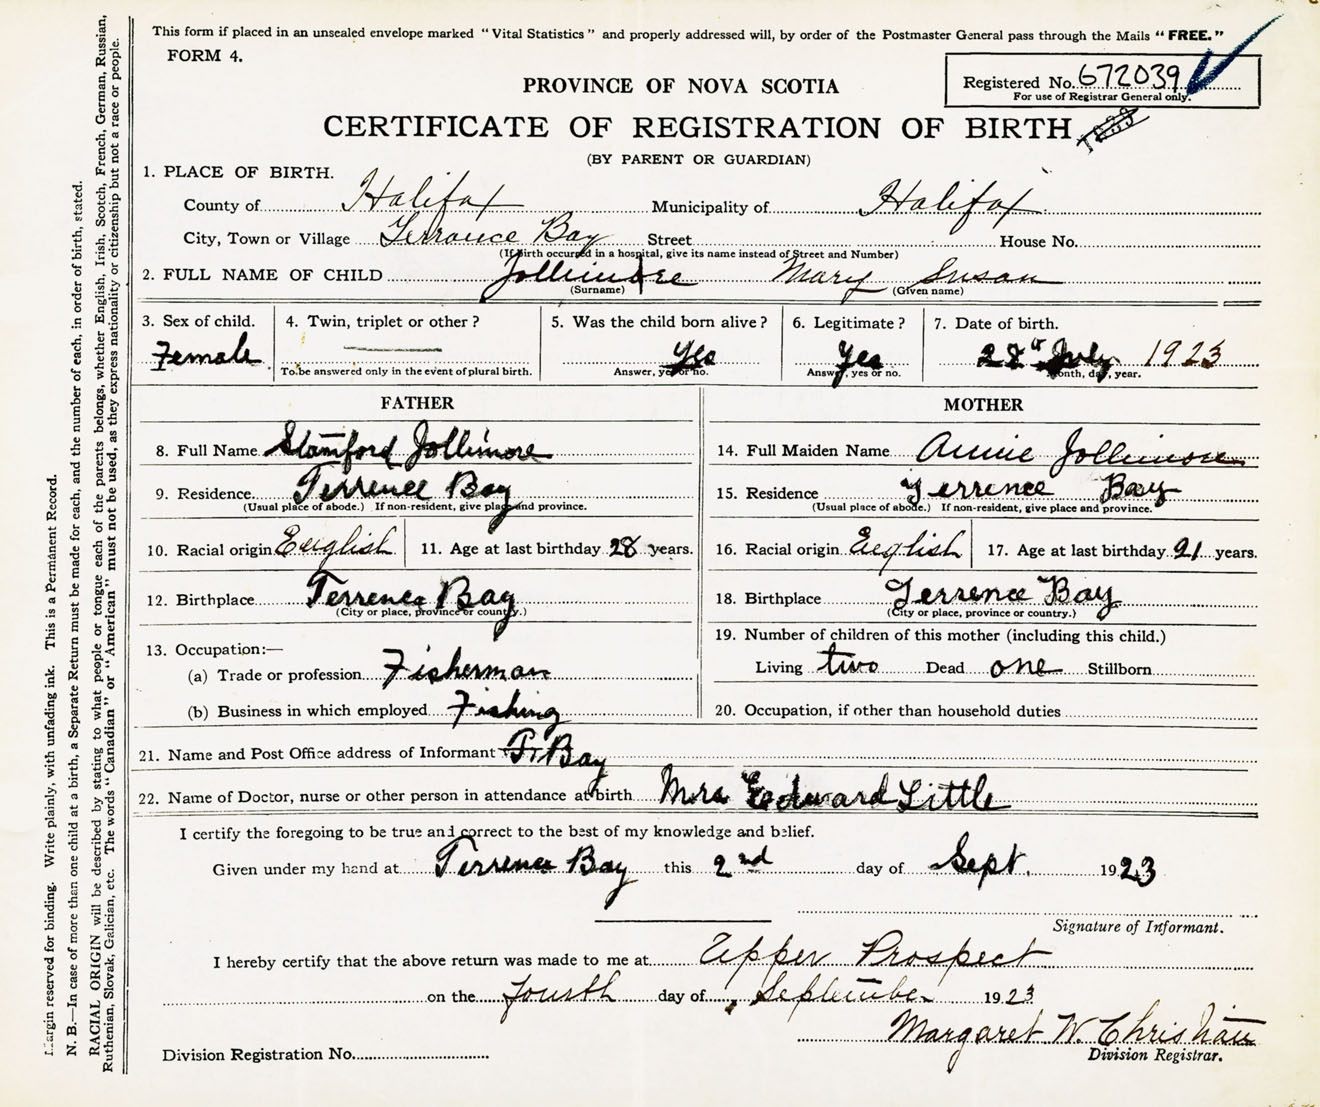 This form if placed in an unsealed envelope marked "Vital Statistics" and properly addressed will, by order of the Postmaster General pass through the Mails "FREE."
FORM 4.
Registered No. 672039
For use of Registrar General only.
PROVINCE OF NOVA SCOTIA
CERTIFICATE OF REGISTRATION OF BIRTH
(BY PARENT OR GUARDIAN)
1. PLACE OF BIRTH.
County of Halifax Municipality of Halifax
City, Town or Village Terrance Bay Street House No.
(If birth occurred in a hospital, give its name instead of Street and Number)
2. FULL NAME OF CHILD Jollimore Mary Susan
(Surname) (Given name)
3. Sex of child. 4. Twin, triplet or other? 5. Was the child born alive? 6. Legitimate? 7. Date of birth.
Female Yes Yes 28th July 1923
To be answered only in the event of plural birth. Answer, yes or no. Answer, yes or no. Month, day, year.
FATHER MOTHER
8. Full Name Stamford Jollimore 14. Full Maiden Name Annie Jollimore
9. Residence Terrence Bay 15. Residence Terrence Bay
(Usual place of abode.) If non-resident, give place and province. (Usual place of abode.) If non-resident, give place and province.
10. Racial origin English 11. Age at last birthday 28 years. 16. Racial origin English 17. Age at last birthday 21 years.
12. Birthplace Terrence Bay 18. Birthplace Terrence Bay
(City or place, province or country.) (City or place, province or country.)
13. Occupation:— 19. Number of children of this mother (including this child.)
(a) Trade or profession Fisherman Living two Dead one Stillborn
(b) Business in which employed Fishing 20. Occupation, if other than household duties
21. Name and Post Office address of Informant T. Bay
22. Name of Doctor, nurse or other person in attendance at birth Mrs Edward Little
I certify the foregoing to be true and correct to the best of my knowledge and belief.
Given under my hand at Terrence Bay this 2nd day of Sept. 1923
Signature of Informant.
I hereby certify that the above return was made to me at Upper Prospect
on the fourth day of September 1923
Margaret W. Christian
Division Registration No. Division Registrar.
Margin reserved for binding. Write plainly, with unfading ink. This is a Permanent Record.
N. B.—In case of more than one child at a birth, a Separate Return must be made for each, and the number of each, in order of birth, stated.
RACIAL ORIGIN will be described by stating to what people or tongue each of the parents belongs, whether English, Irish, Scotch, French, German, Russian,
Ruthenian, Slovak, Galician, etc. The words "Canadian" or "American" must not be used, as they express nationality or citizenship but not a race or people.